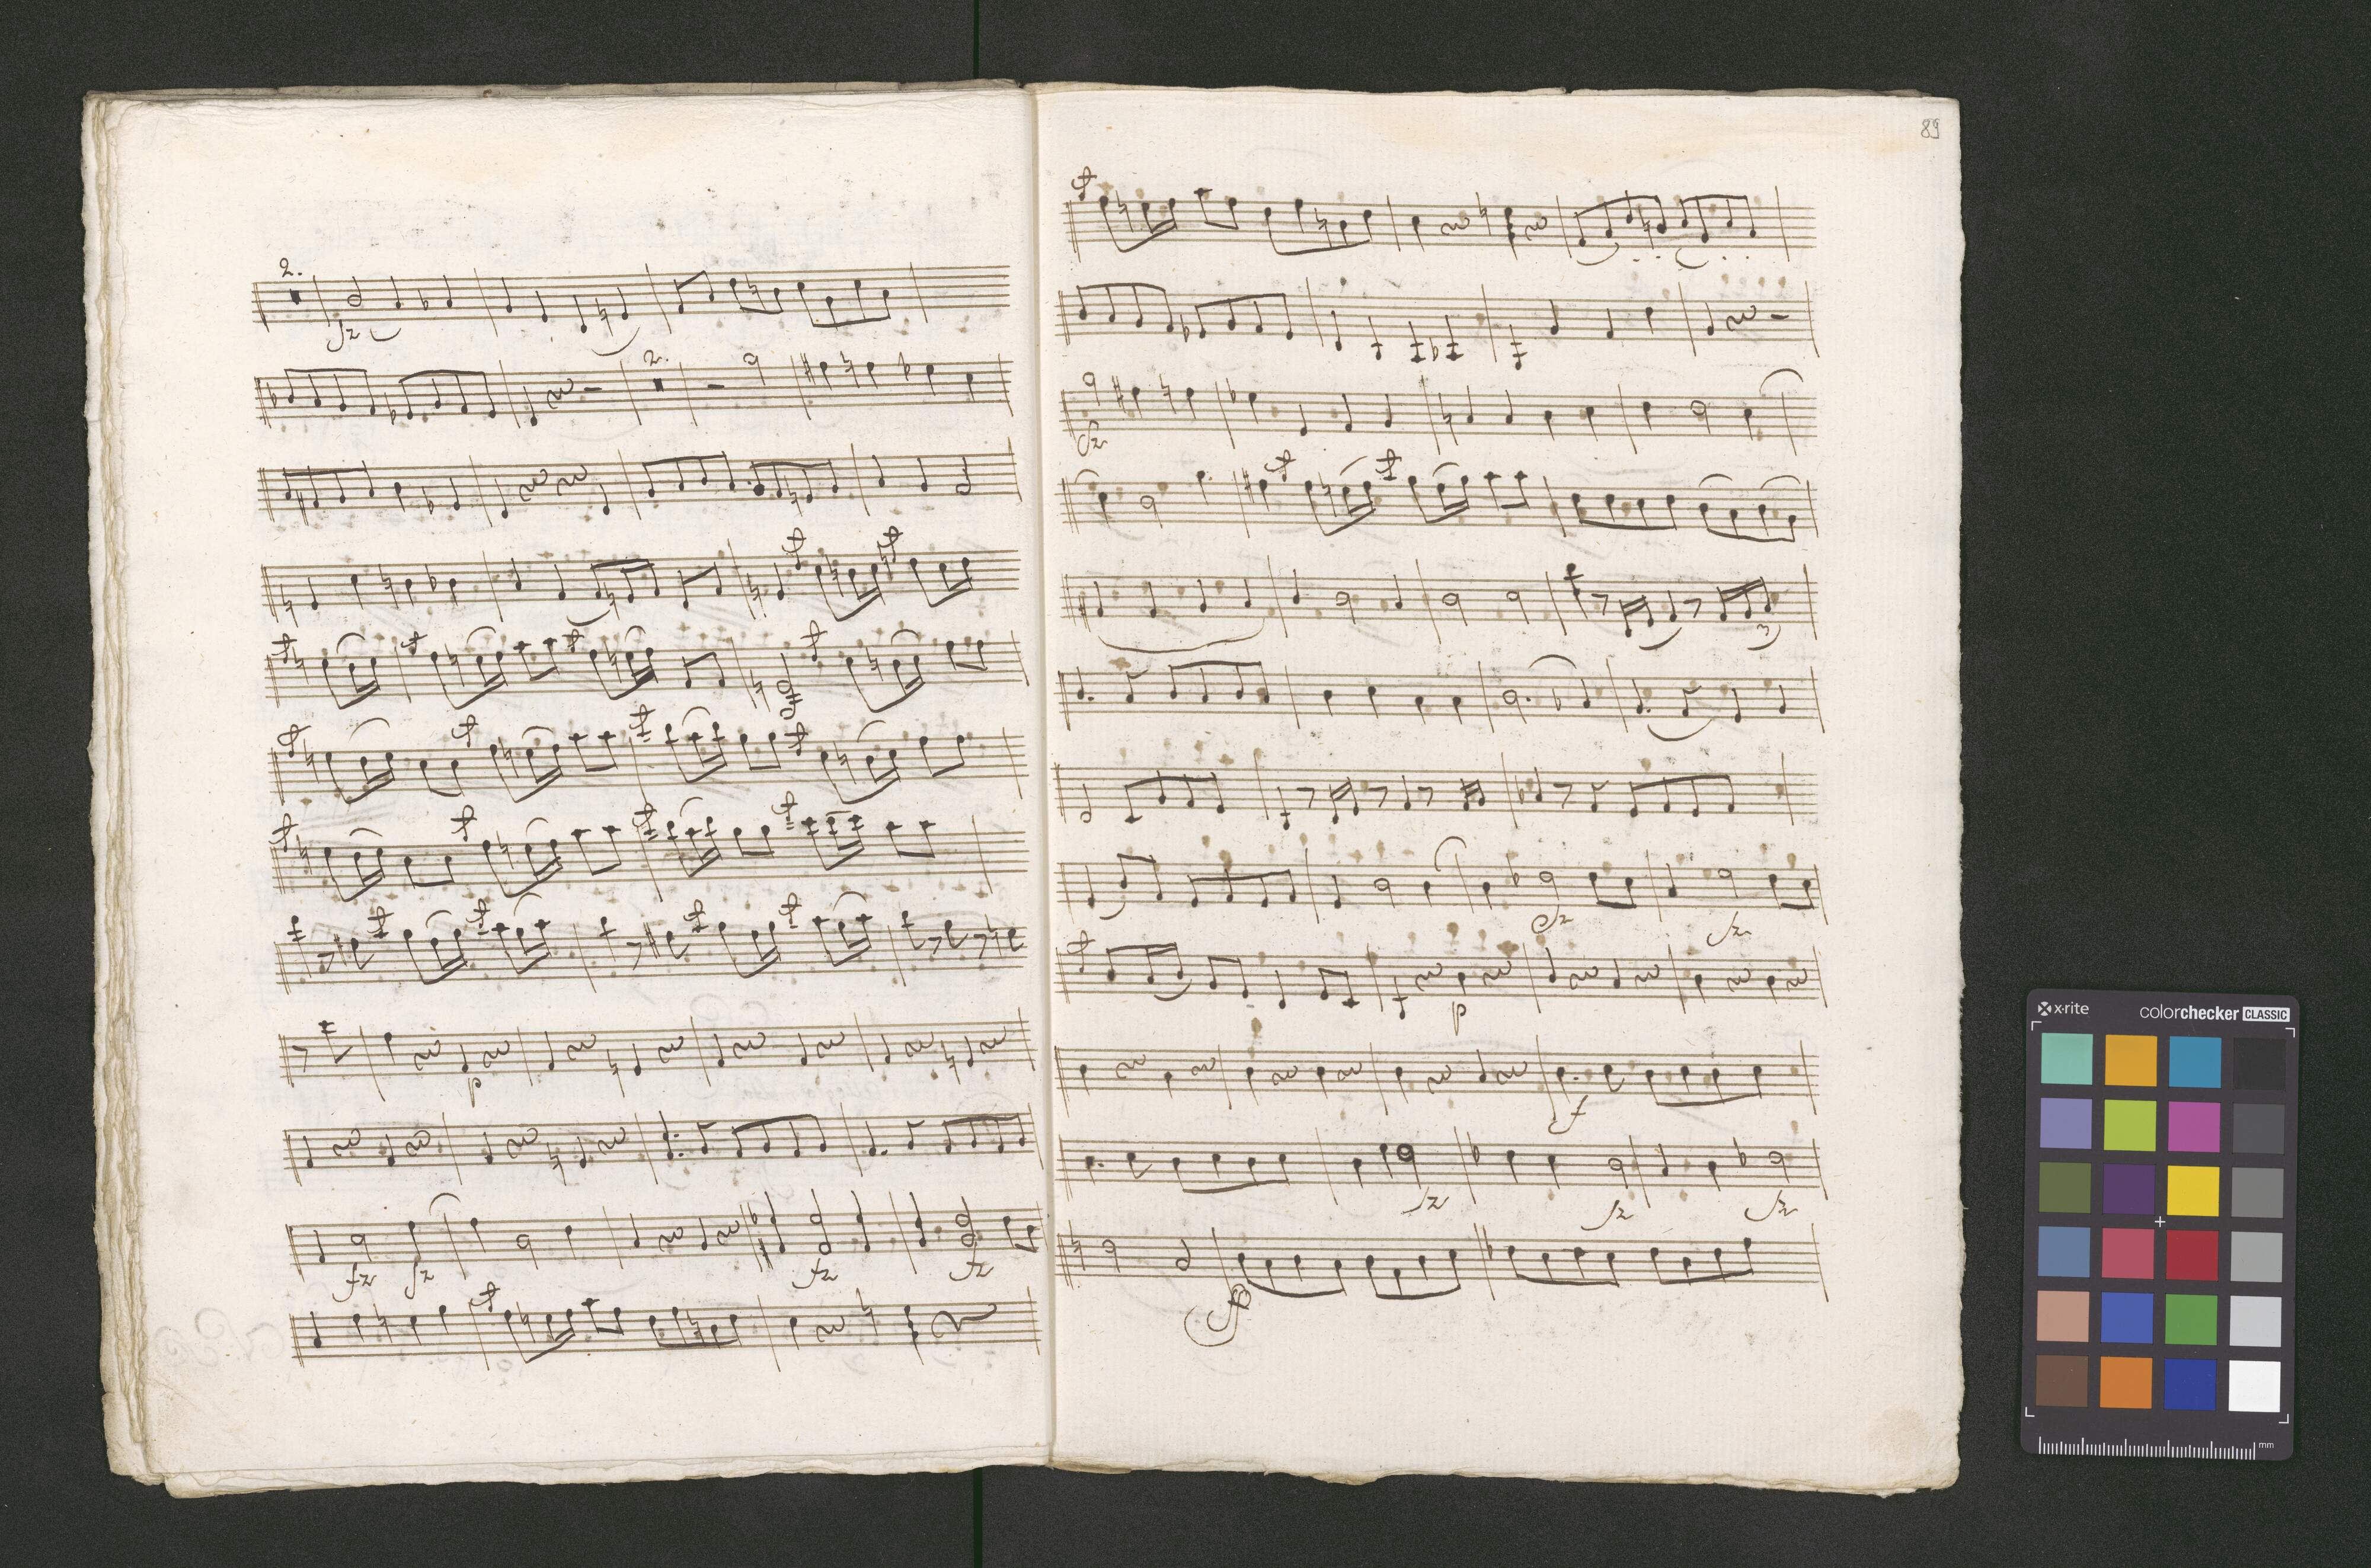 2.
fz
2.
p
fz fz fz fz
89
fz
3
fz fz
p
f
fz fz fz
fp
x-rite colorchecker CLASSIC
mm